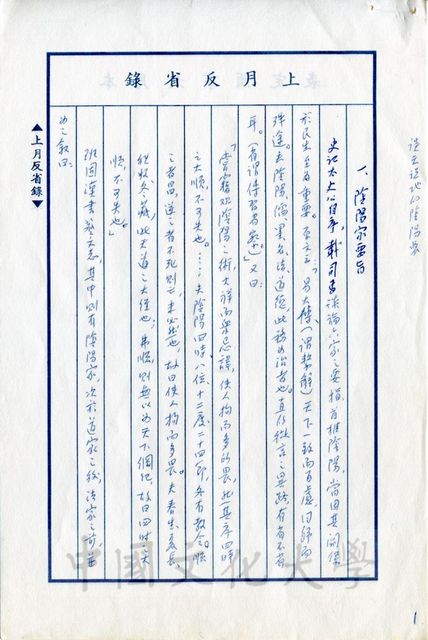 上月反省錄
談天說地的陰陽家
一、陰陽家要旨
史記太史公自序,載司馬談論六家之要指首推陰陽,當因其關係
於民生至為重要。其文云:「易大傳(謂繫辭)天下一致而百慮,同歸而
殊途。夫陰陽、儒、墨、名、法、道德,此務為治者也。直所從言之異路,有省不省
耳。(省謂傳習省察)」又曰:
「嘗竊觀陰陽之術,大祥而眾忌諱,使人拘而多所畏,然其序四時
之大順,不可失也。……夫陰陽四時八位、十二度、二十四節,各有教令。順
之者昌,逆之者不死則亡,未必然也,故曰使人拘而多畏。夫春生夏長
秋收冬藏,此天道之大經也,弗順,則無以為天下綱紀,故曰四時之大
順,不可失也。」
班固漢書藝文志,其中則有陰陽家,次於道家之後,法家之前,並
為之敘曰:
▲上月反省錄▼
中國文化大學
1